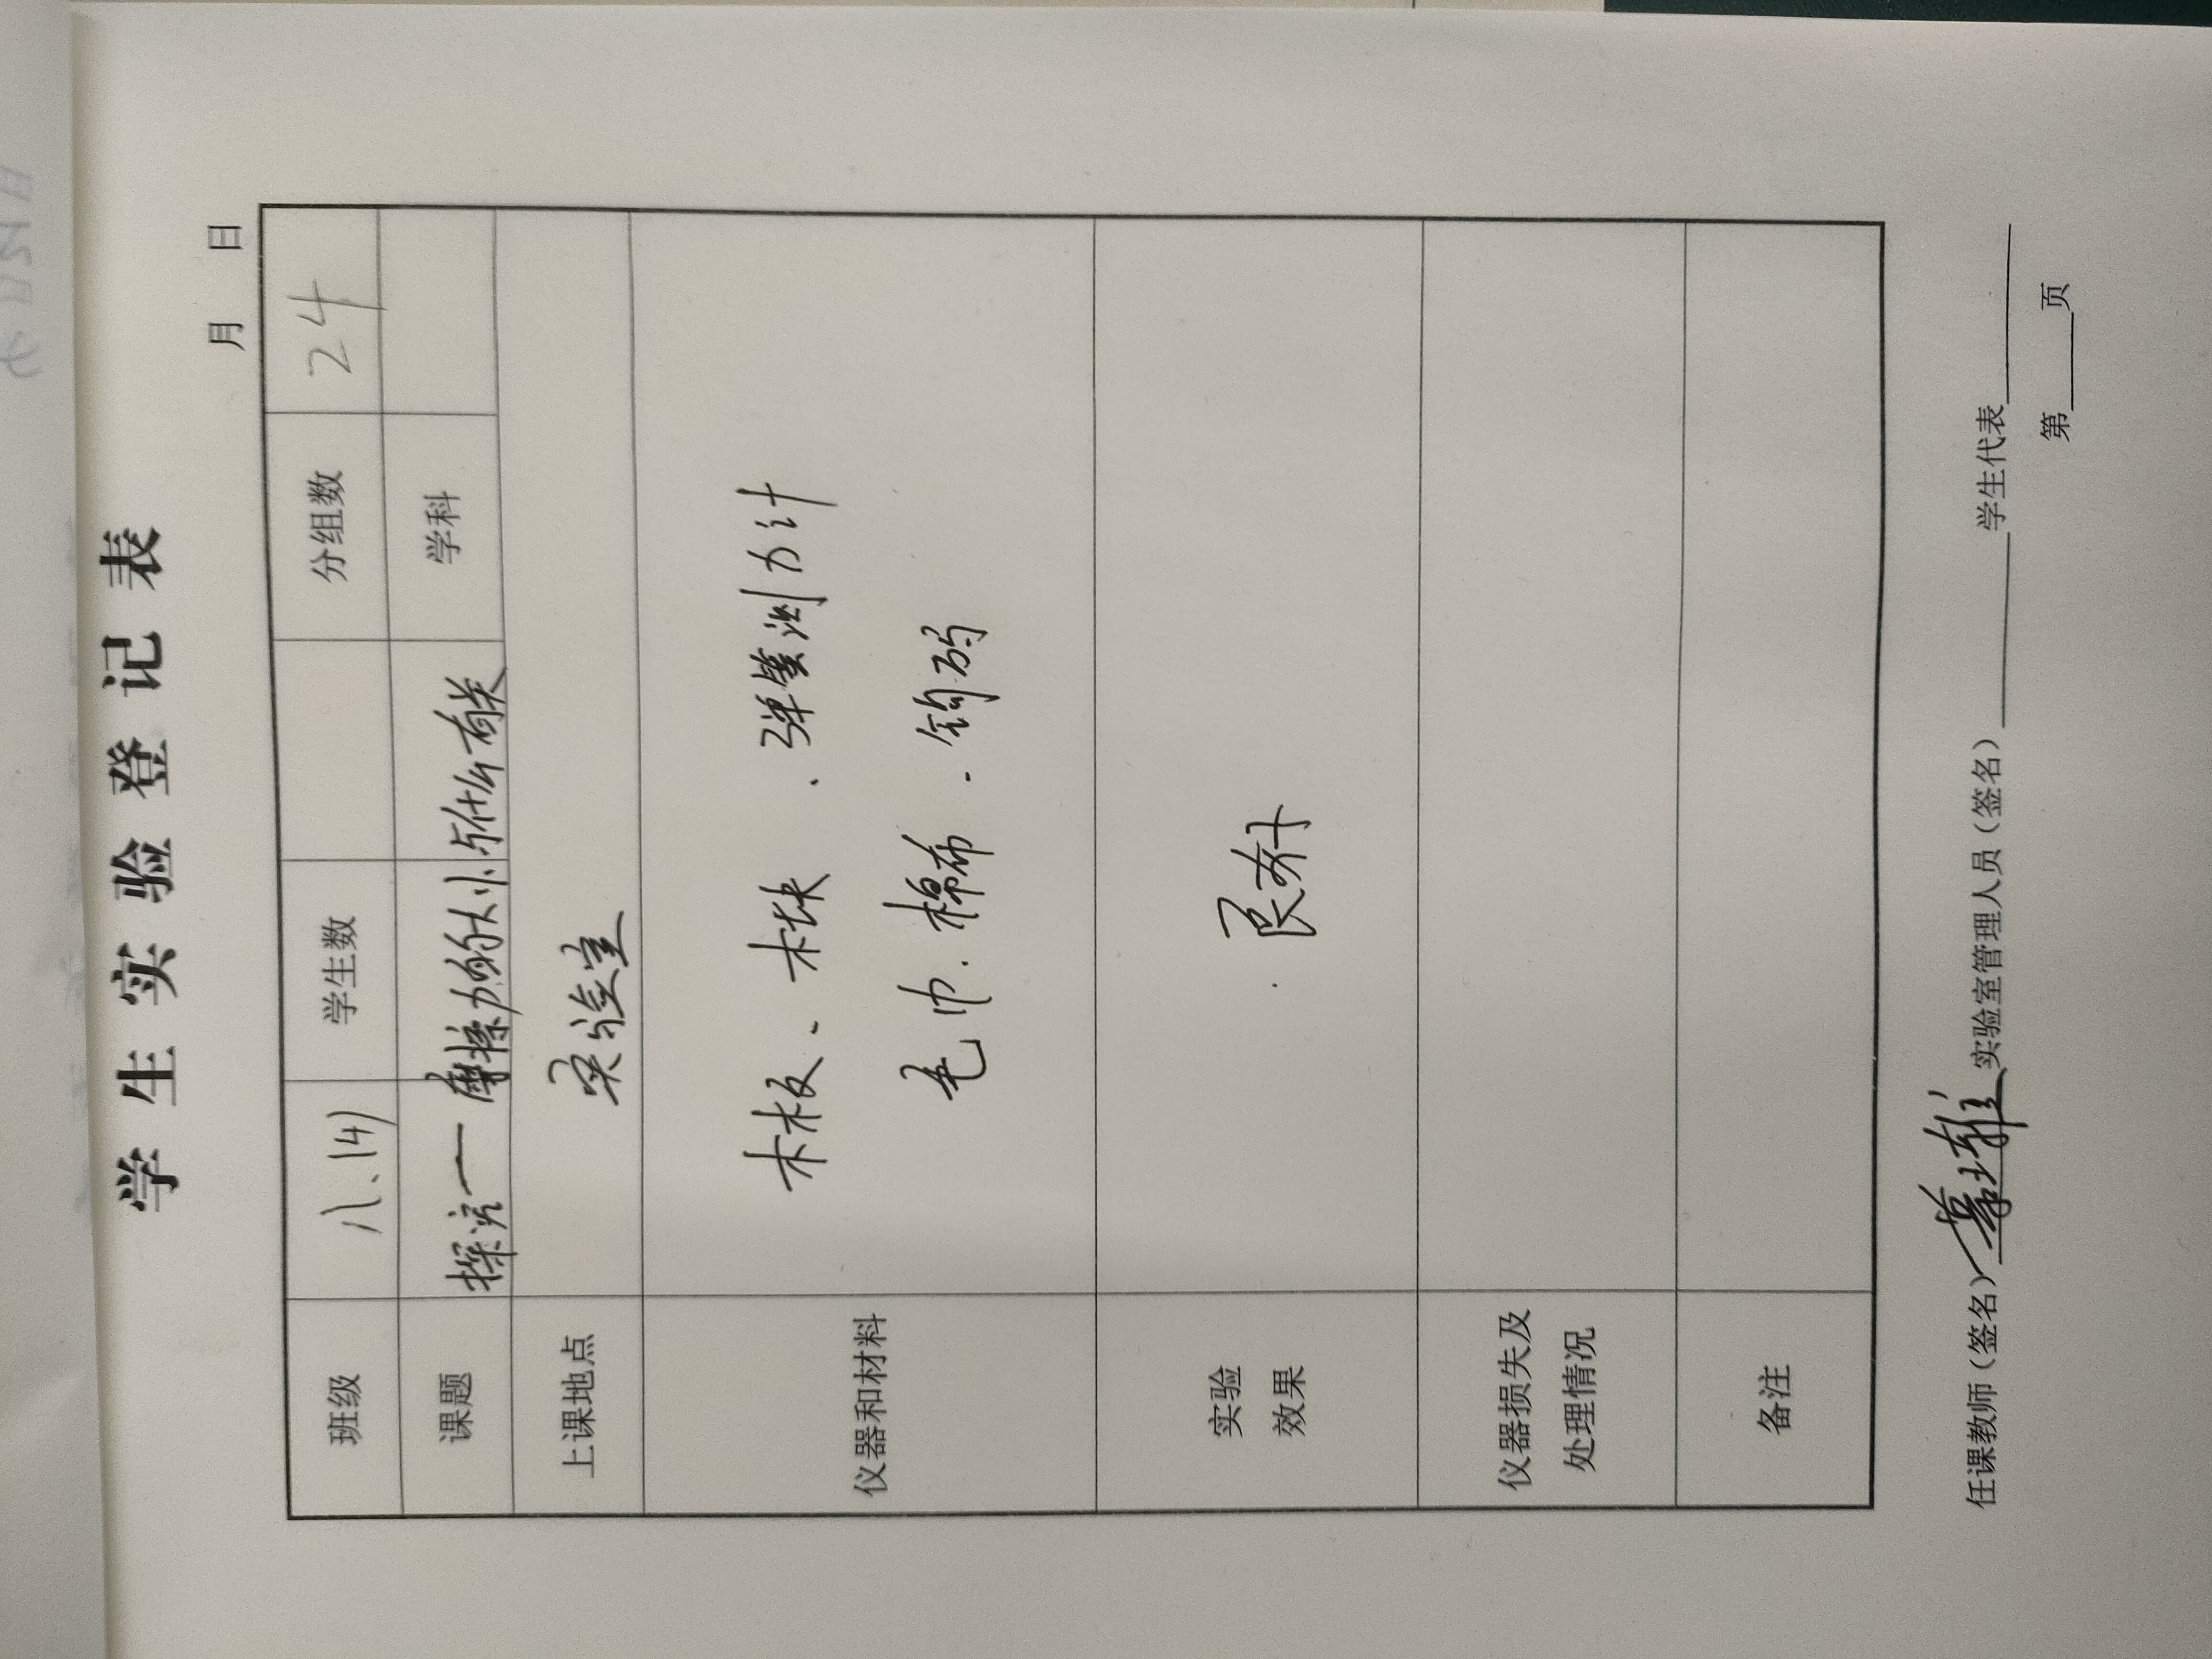 学生实验登记表
月 日
班级 八、14) 学生数 分组数 24
课题 探究一 摩擦力的大小与什么有关 学科
上课地点 实验室
仪器和材料 木板、木块、弹簧测力计
毛巾、棉布、钩码
实验
效果 良好
仪器损失及
处理情况
备注
任课教师(签名) 实验室管理人员(签名) 学生代表
第 页